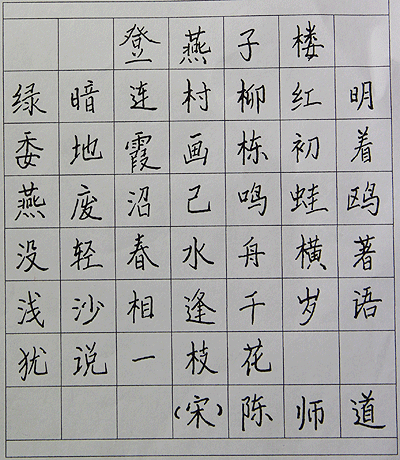 登燕子楼
绿暗连村柳红明
委地霞画栋初着
燕废沼已鸣蛙鸥
没轻春水舟横著
浅沙相逢千岁语
犹说一枝花
(宋)陈师道